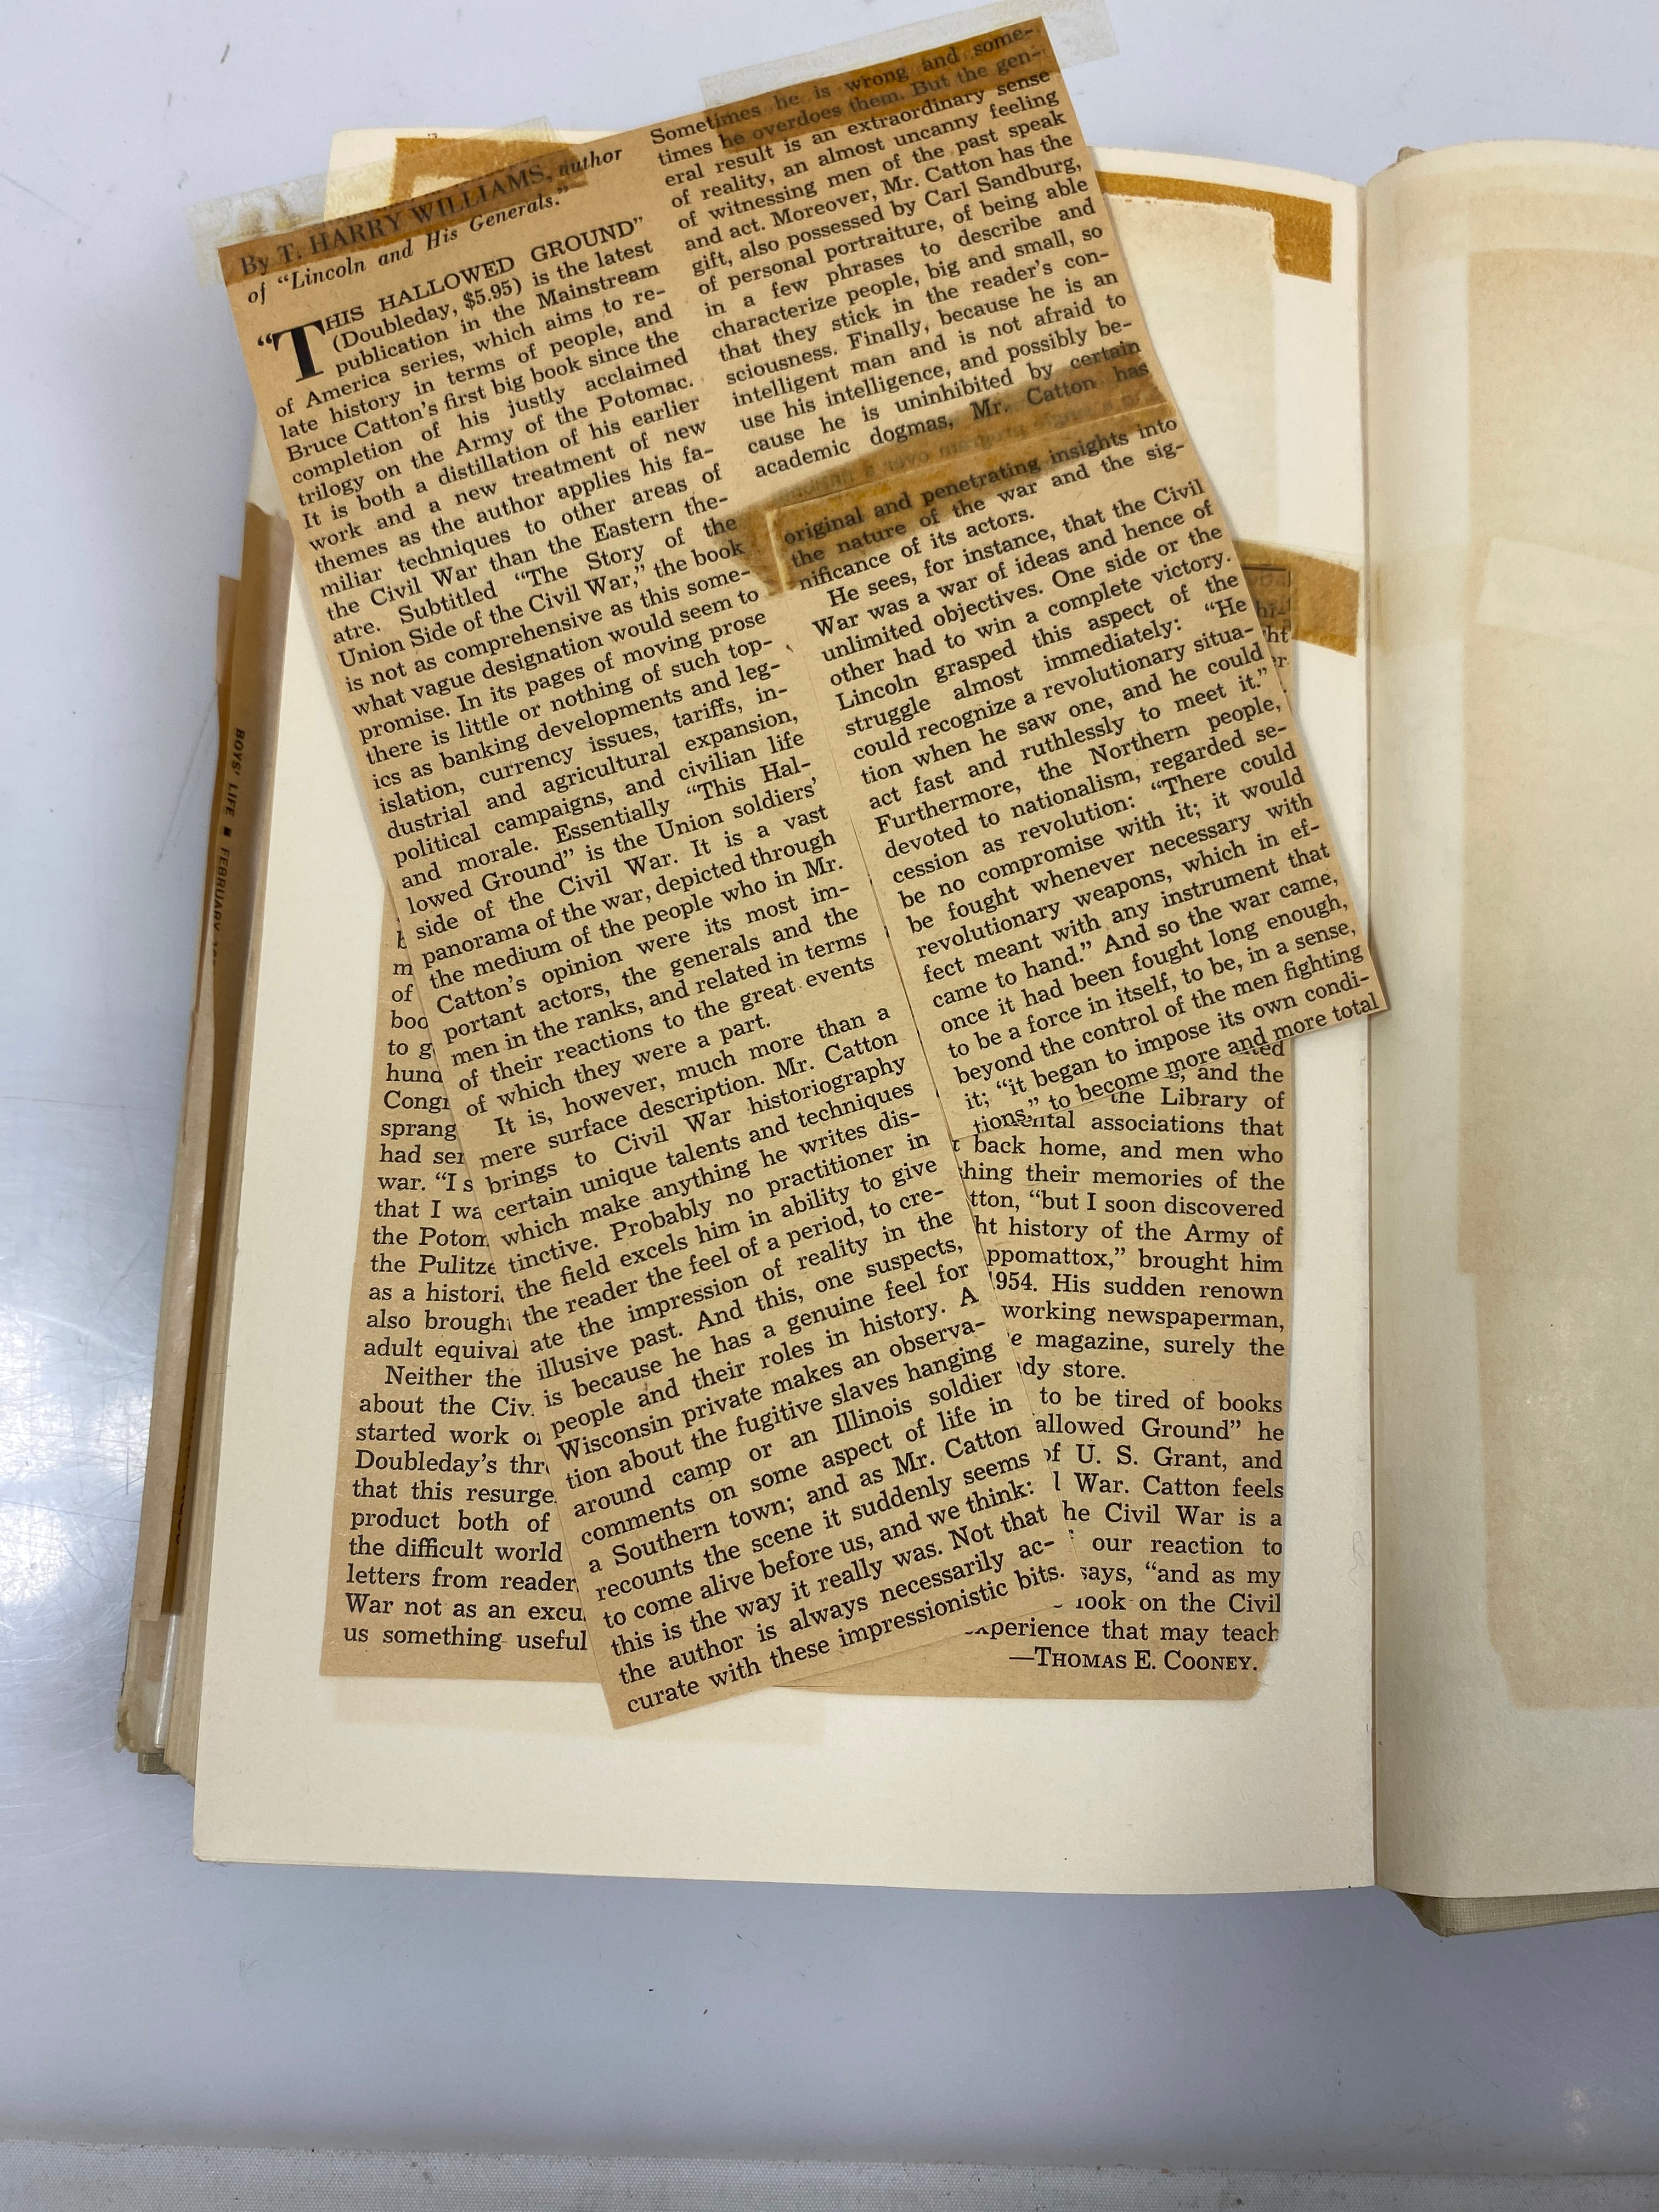 By T. HARRY WILLIAMS, author
of "Lincoln and His Generals."
"THIS HALLOWED GROUND"
(Doubleday, $5.95) is the latest
publication in the Mainstream
of America series, which aims to re-
late history in terms of people, and
Bruce Catton's first big book since the
completion of his justly acclaimed
trilogy on the Army of the Potomac.
It is both a distillation of his earlier
work and a new treatment of new
themes as the author applies his fa-
miliar techniques to other areas of
the Civil War than the Eastern the-
atre. Subtitled "The Story of the
Union Side of the Civil War," the book
is not as comprehensive as this some-
what vague designation would seem to
promise. In its pages of moving prose
there is little or nothing of such top-
ics as banking developments and leg-
islation, currency issues, tariffs, in-
dustrial and agricultural expansion,
political campaigns, and civilian life
and morale. Essentially "This Hal-
lowed Ground" is the Union soldiers'
side of the Civil War. It is a vast
panorama of the war, depicted through
the medium of the people who in Mr.
Catton's opinion were its most im-
portant actors, the generals and the
men in the ranks, and related in terms
of their reactions to the great events
of which they were a part.
It is, however, much more than a
mere surface description. Mr. Catton
brings to Civil War historiography
certain unique talents and techniques
which make anything he writes dis-
tinctive. Probably no practitioner in
the field excels him in ability to give
the reader the feel of a period, to cre-
ate the impression of reality in the
illusive past. And this, one suspects,
is because he has a genuine feel for
people and their roles in history. A
Wisconsin private makes an observa-
tion about the fugitive slaves hanging
around camp or an Illinois soldier
comments on some aspect of life in
a Southern town; and as Mr. Catton
recounts the scene it suddenly seems
to come alive before us, and we think:
this is the way it really was. Not that
the author is always necessarily ac-
curate with these impressionistic bits.
Sometimes he is wrong and some-
times he overdoes them. But the gen-
eral result is an extraordinary sense
of reality, an almost uncanny feeling
of witnessing men of the past speak
and act. Moreover, Mr. Catton has the
gift, also possessed by Carl Sandburg,
of personal portraiture, of being able
in a few phrases to describe and
characterize people, big and small, so
that they stick in the reader's con-
sciousness. Finally, because he is an
intelligent man and is not afraid to
use his intelligence, and possibly be-
cause he is uninhibited by certain
academic dogmas, Mr. Catton has
original and penetrating insights into
the nature of the war and the sig-
nificance of its actors.
He sees, for instance, that the Civil
War was a war of ideas and hence of
unlimited objectives. One side or the
other had to win a complete victory.
Lincoln grasped this aspect of the
struggle almost immediately: "He
could recognize a revolutionary situa-
tion when he saw one, and he could
act fast and ruthlessly to meet it."
Furthermore, the Northern people,
devoted to nationalism, regarded se-
cession as revolution: "There could
be no compromise with it; it would
be fought whenever necessary with
revolutionary weapons, which in ef-
fect meant with any instrument that
came to hand." And so the war came,
once it had been fought long enough,
to be a force in itself, to be, in a sense,
beyond the control of the men fighting
it; "it began to impose its own condi-
tions," to become more and more total
m
of
boo
to g
hund
Congr
sprang
had ser
war. "I s
that I wa
the Potom
the Pulitze
as a histori
also brough
adult equival
Neither the
about the Civ
started work o
Doubleday's thr
that this resurge
product both of
the difficult world
letters from reader
War not as an excu
us something useful
and the
the Library of
ental associations that
back home, and men who
hing their memories of the
tton, "but I soon discovered
ht history of the Army of
ppomattox," brought him
1954. His sudden renown
working newspaperman,
e magazine, surely the
dy store.
to be tired of books
allowed Ground" he
of U. S. Grant, and
l War. Catton feels
he Civil War is a
our reaction to
says, "and as my
look on the Civil
xperience that may teach
—THOMAS E. COONEY.
BOYS' LIFE ■ FEBRUARY